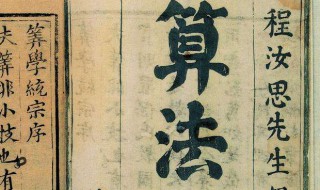 程汝思先生
算法
筭學統宗序
夫筭非小技也有